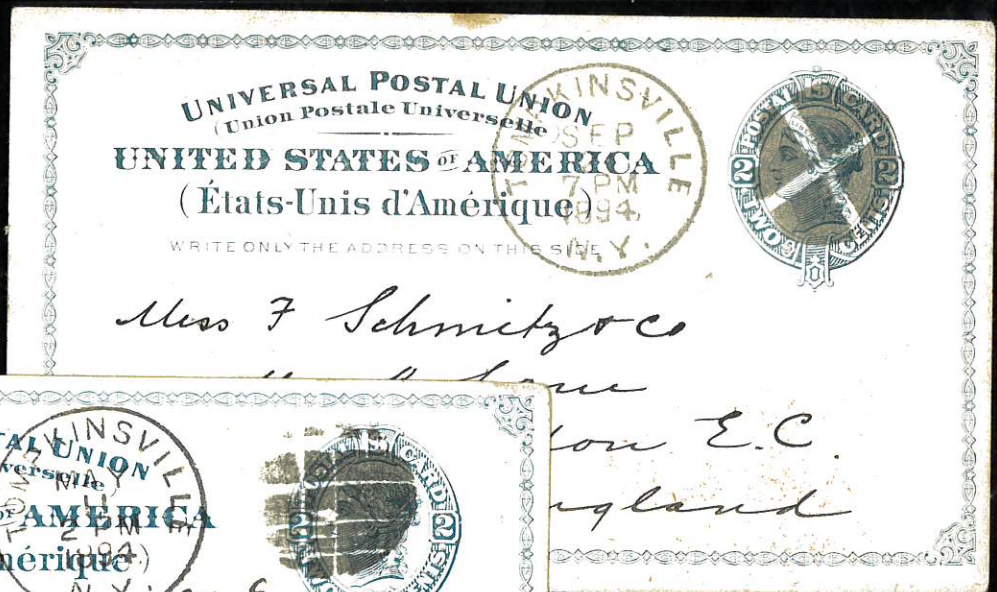 UNIVERSAL POSTAL UNION
(Union Postale Universelle
UNITED STATES OF AMERICA
(États-Unis d'Amérique)
WRITE ONLY THE ADDRESS ON THIS SIDE
TOMPKINSVILLE
SEP
7 PM
1894
N.Y.
POSTAL CARD
2 2
TWO CENTS
Mess F Schmitz & Co
Lane
don E.C.
ngland
TAL UNION
verselle)
OF AMERICA
mérique)
TOMPKINSVILLE
MAY
11
2 PM
1894
N.Y.
CARD
2 2